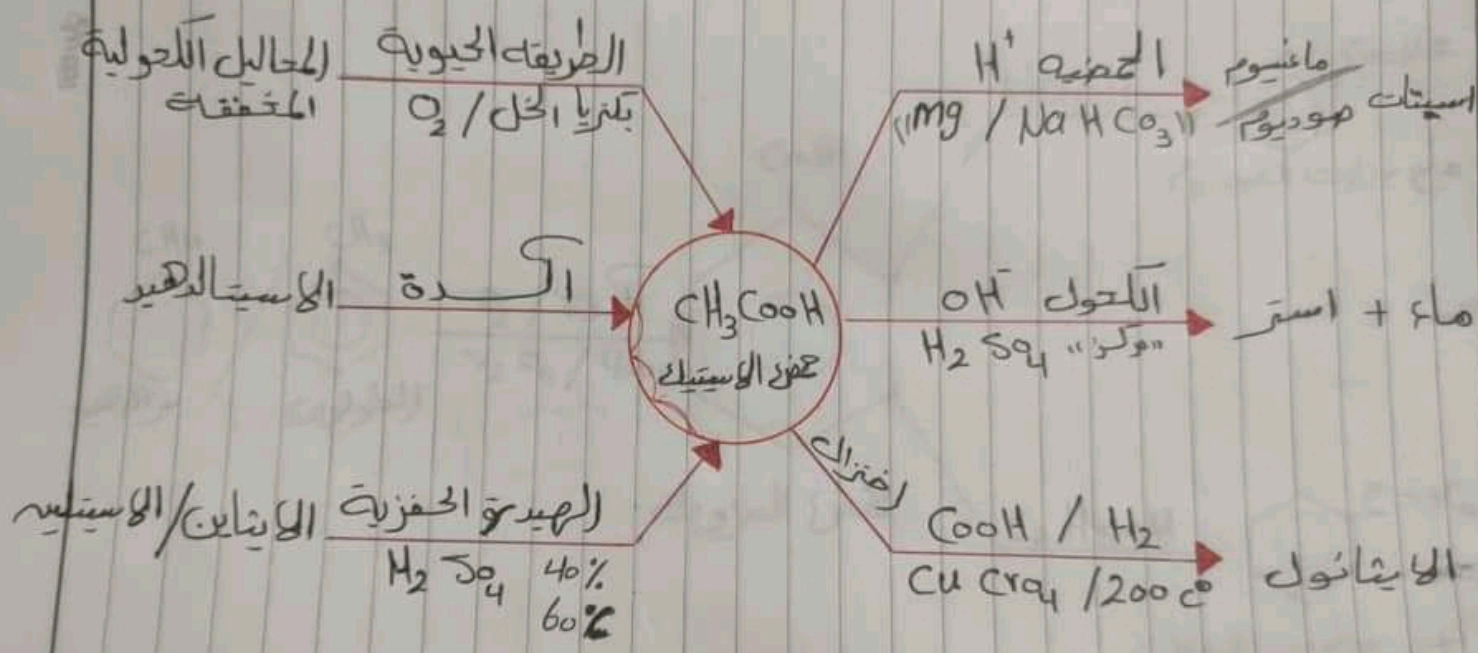 المحاليل الكحولية
المخففة
الطريقه الحيوية
بكتريا الخل / O₂
الاسيتالدهيد
اكسدة
الايثاين/الاسيتلين
الهيدرة الحفزية
H₂So₄ 40%
60%
CH₃CooH
حمض الاسيتيك
الحمضيه H⁺
"Mg / NaHCo₃"
اسيتات
ماغنسيوم
صوديوم
الكحول OH⁻
H₂So₄ "مركز"
ماء + استر
اختزال
CooH / H₂
Cu Cro₄ /200 c°
الايثانول